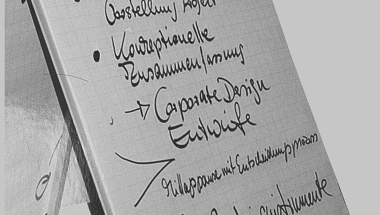 Vorstellung Projekt
• Konzeptionelle
Zusammenfassung
→ Corporate Design
Entwürfe
Mittagspause mit Entscheidungsprozess